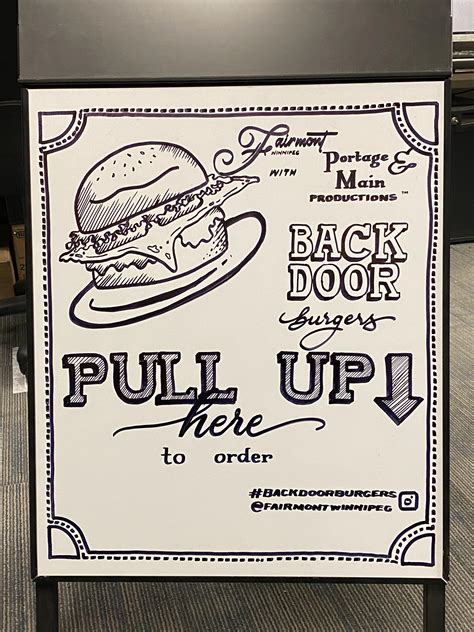 Fairmont
WINNIPEG
WITH
Portage &
Main
PRODUCTIONS™
BACK
DOOR
burgers
PULL UP
here
to order
#BACKDOORBURGERS
@FAIRMONTWINNIPEG